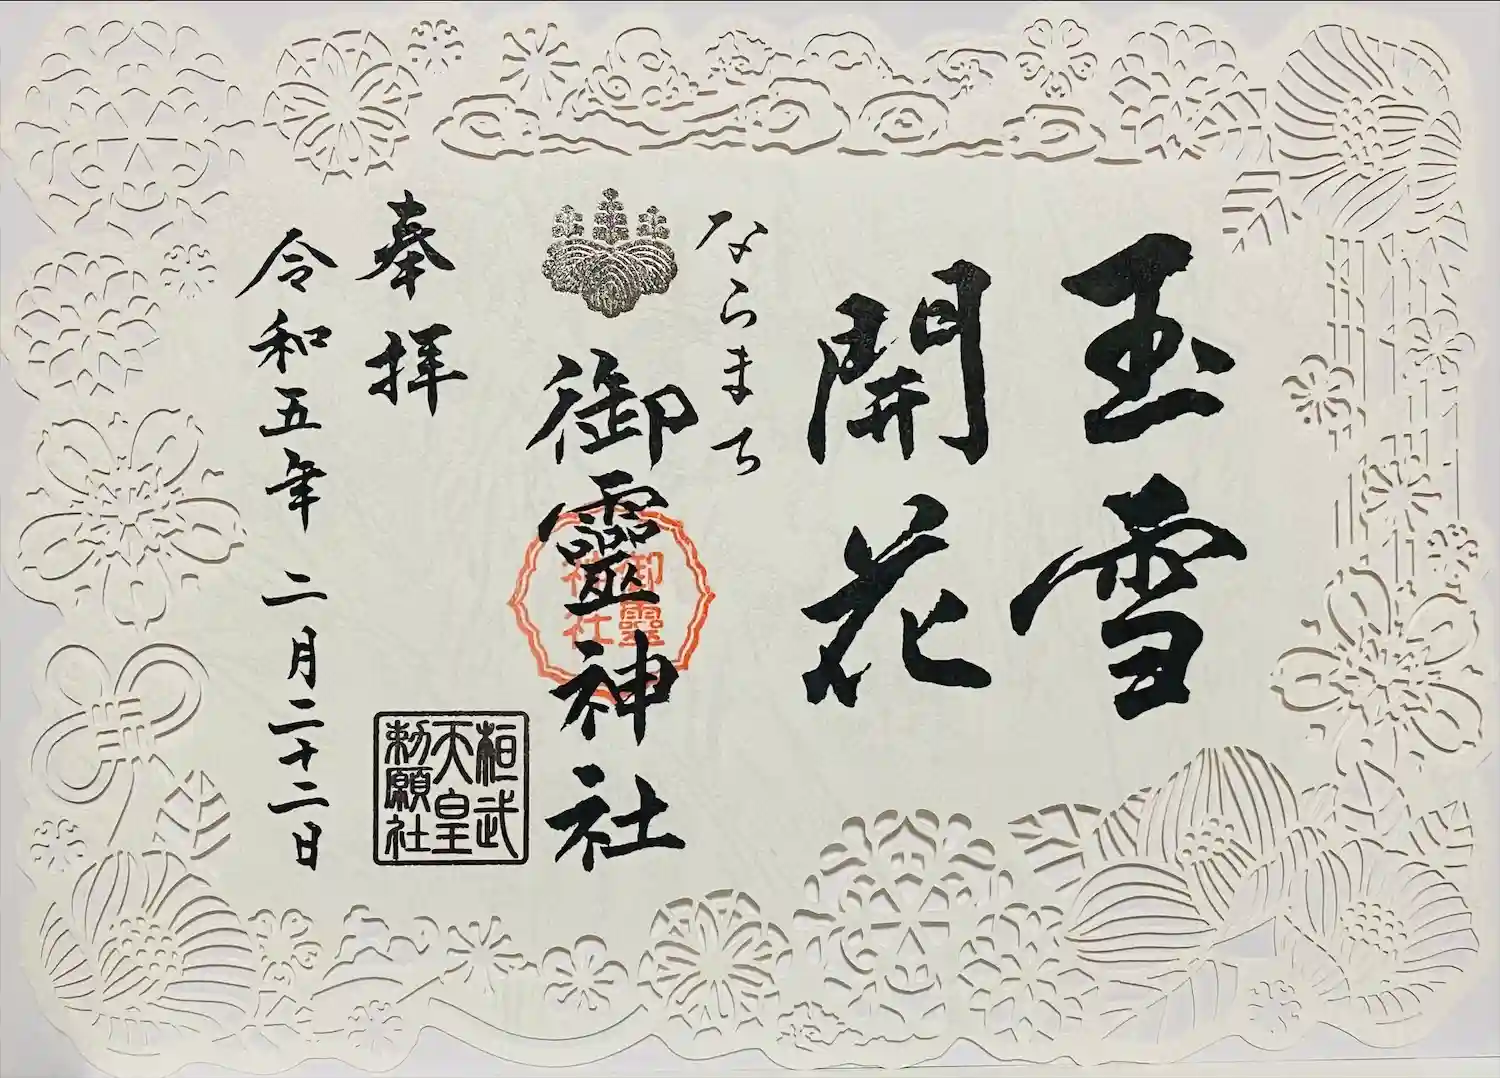 玉雪
開花
ならまち
御靈神社
御靈
神社
奉拝
桓武
天皇
勅願社
令和五年 二月二十二日